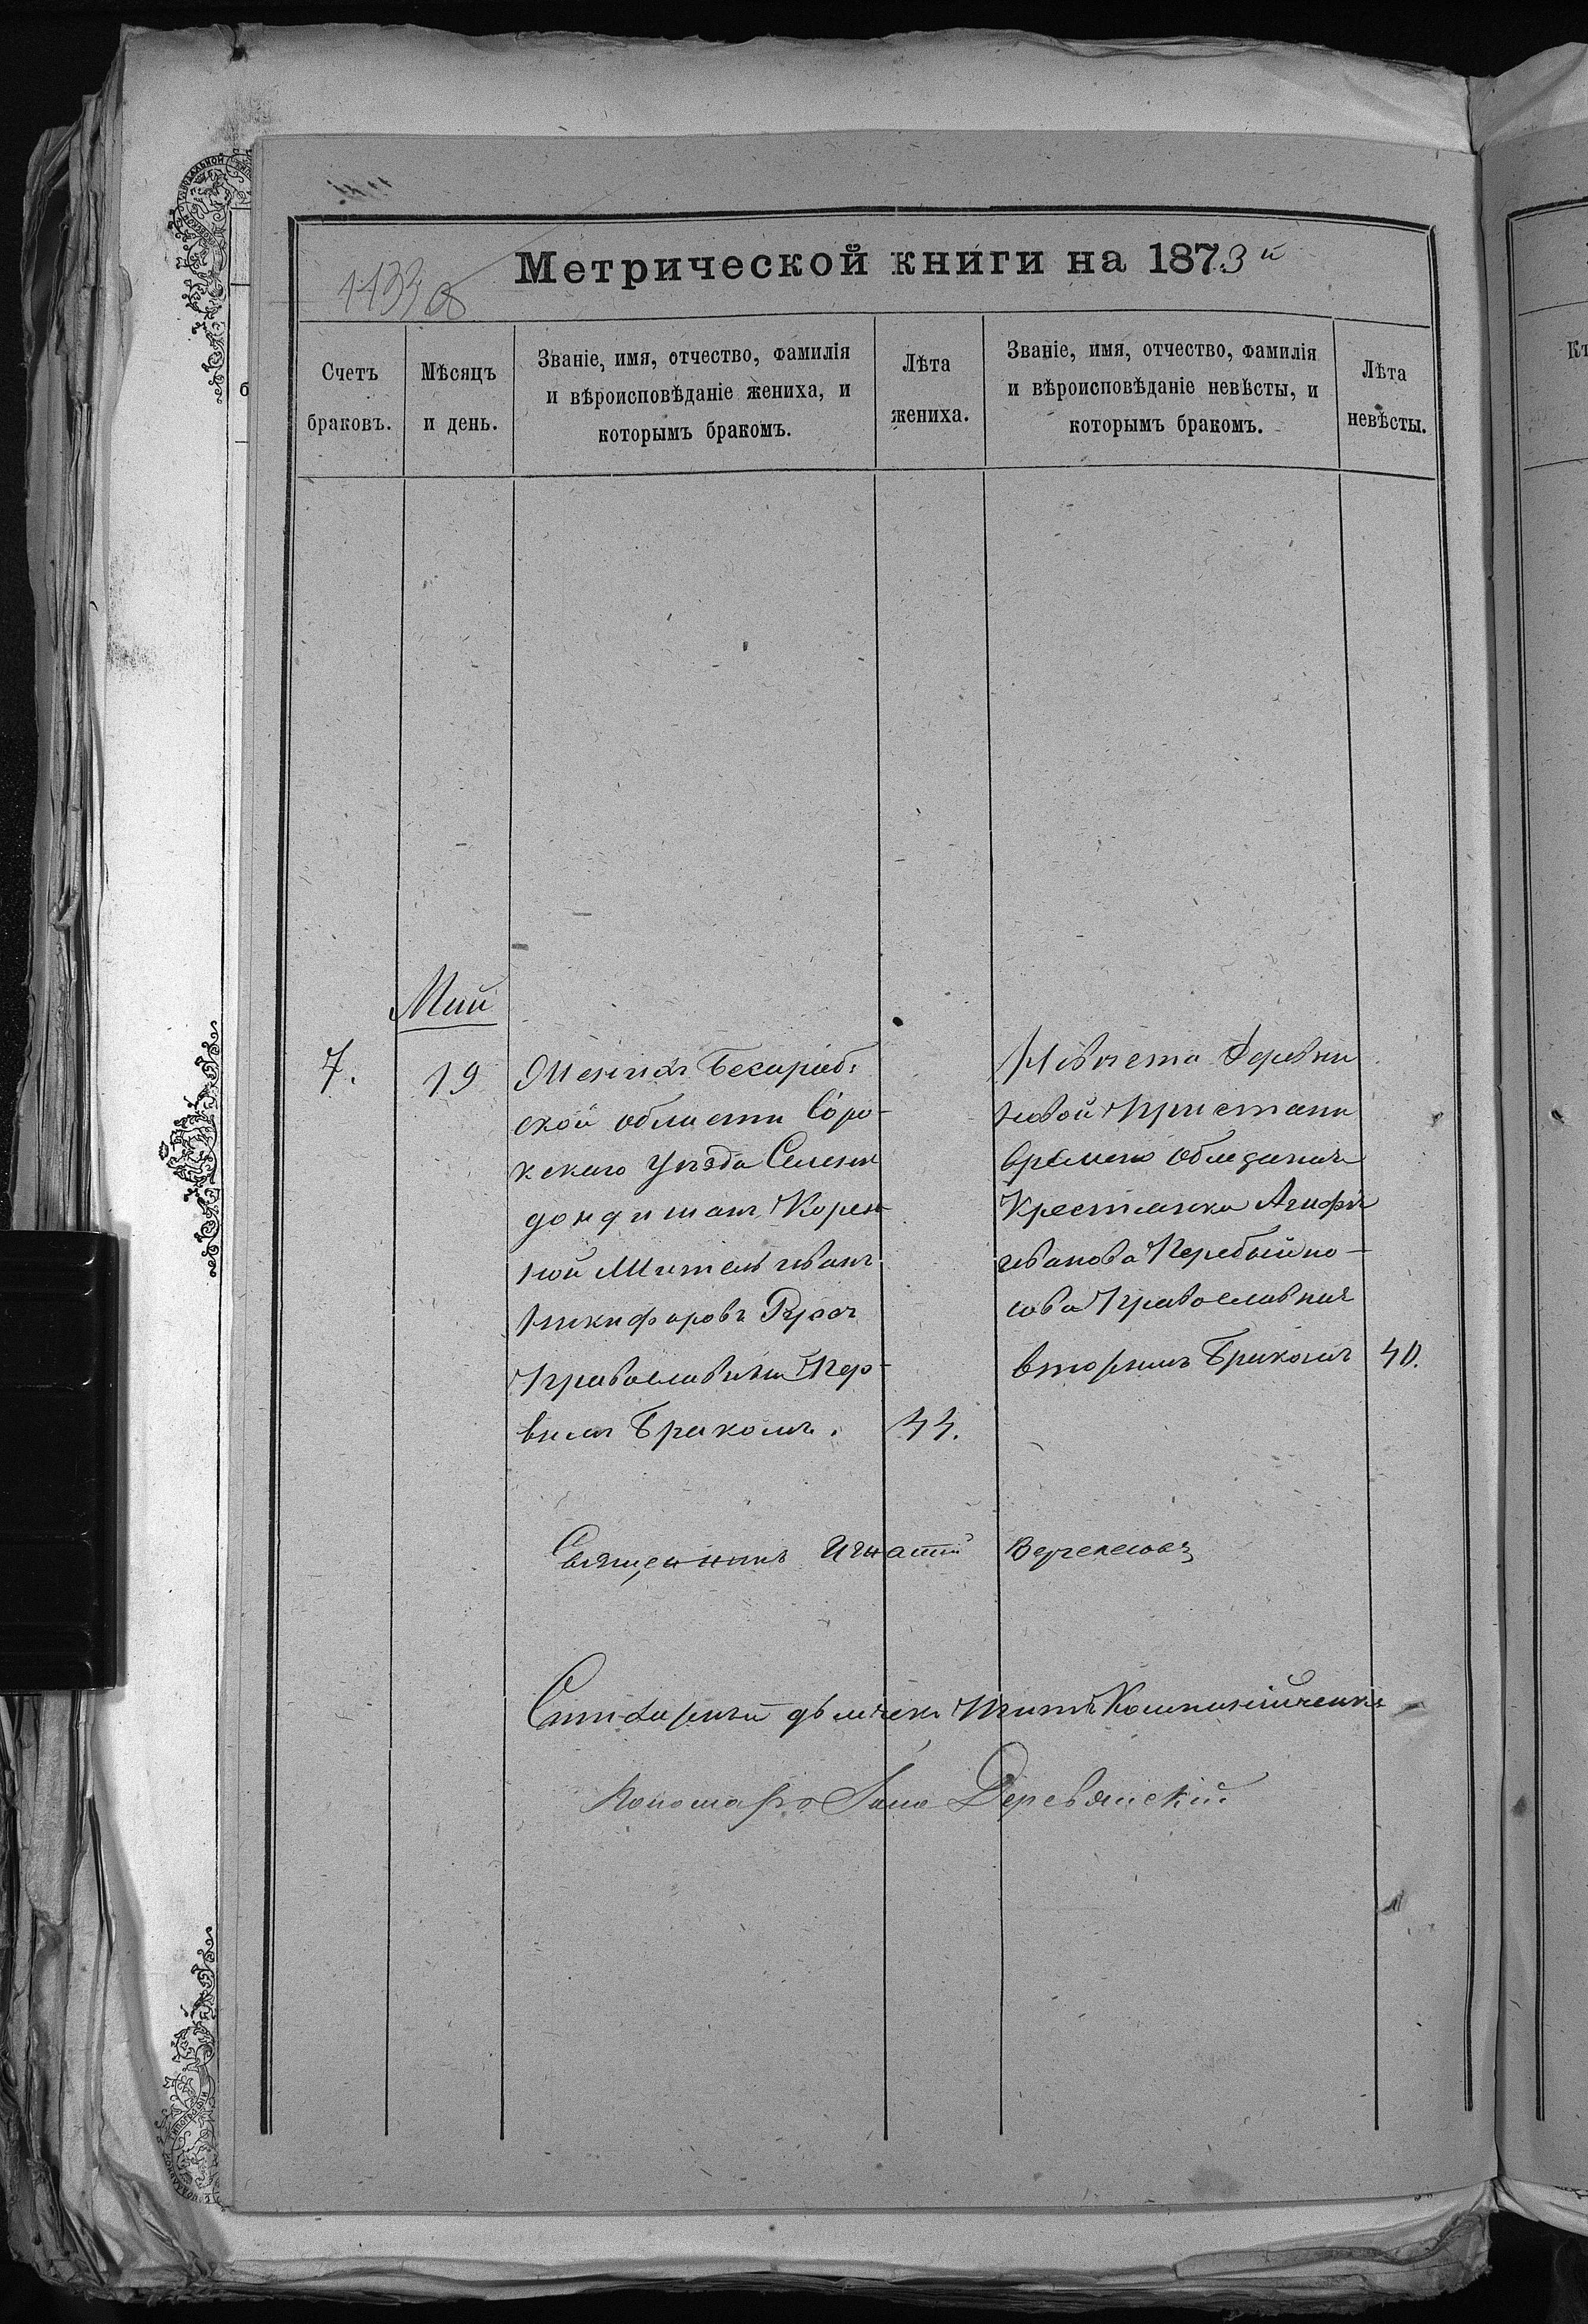 Метрической книги на 1873й
1133 об
Счетъ браковъ.
Мѣсяцъ и день.
Званіе, имя, отчество, фамилія
и вѣроисповѣданіе жениха, и
которымъ бракомъ.
Лѣта жениха.
Званіе, имя, отчество, фамилія
и вѣроисповѣданіе невѣсты, и
которымъ бракомъ.
Лѣта невѣсты.
Май
7.
19
Женихъ Бесараб-
ской области Соро-
кскаго уѣзда Селенія
Корен-
ной Житель Иванъ
Никифоровъ Русъ
Православный Пер-
вымъ Бракомъ.
44.
Невѣста Деревни
Новой Пристани
временно обязаная
Крестьянка Агафія
Иванова Перебыйно-
сова Православная
вторымъ Бракомъ
40.
Священникъ Игнатій
Деревянскій